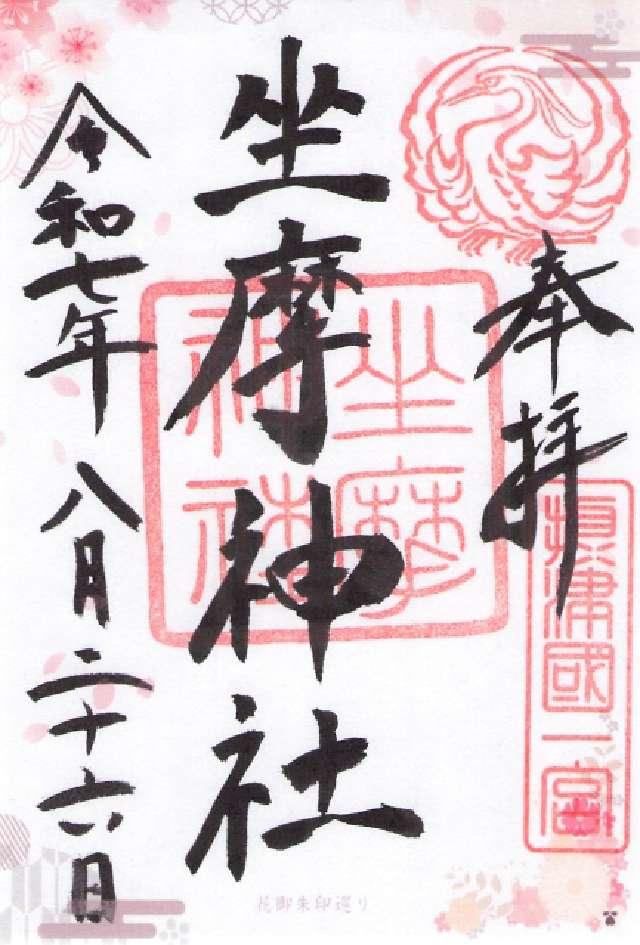 奉拝
摂津國一宮
坐摩神社
坐摩
神社
令和七年八月二十六日
花御朱印巡り